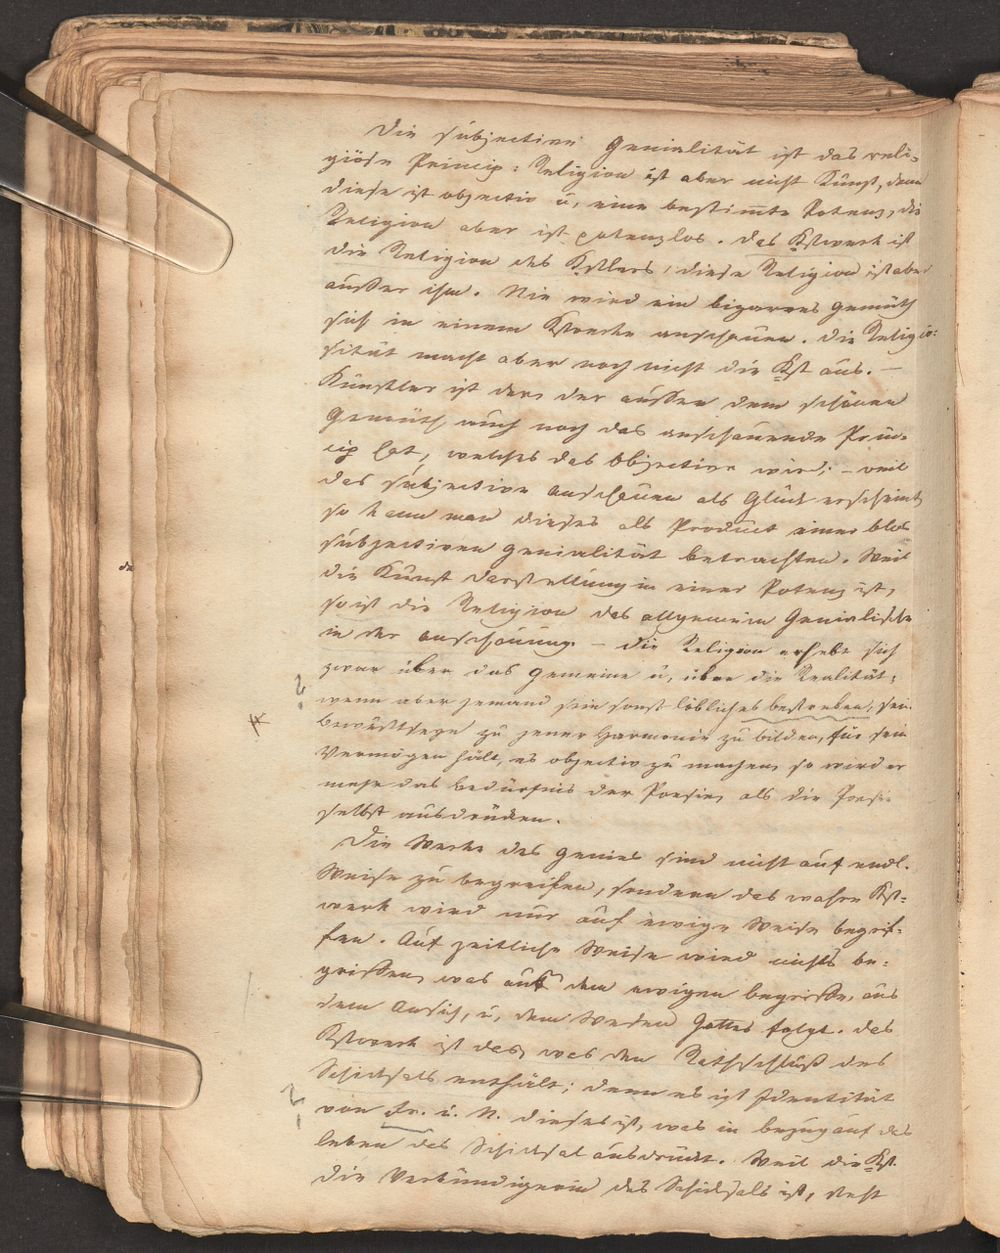 Die subjective Genialität ist das reli-
giöse Princip: Religion ist aber nicht Kunst, denn
diese ist objectiv u, eine bestim̅te Potenz, die
Religion aber ist potenzlos. Das Kstwerk ist
die Religion des Kstlers, diese Religion ist aber
außer ihm. Nie wird ein bizarres Gemüth
sich in einem Kstwerke anschauen. Die Religio-
sität macht aber noch nicht die Kst aus. —
Künstler ist der, der außer dem schönen
Gemüth auch noch das anschauende Prin-
cip hat, welches das Objective wird; – weil
das subjective Anschauen als Glück erscheint
so kann man dieses als Product einer blos
subjectiven Genialität betrachten. Weil
die Kunst Darstellung in einer Potenz ist,
so ist die Religion das allgemein Genialische
in der Anschauung. – Die Religion erhebt sich
zwar über das Gemeine u, über die Realität;
wenn aber jemand sein sonst löbliches bestreben, sein
Bewustseyn zu jener Harmonie zu bilden, für sein
Vermögen hält, es objectiv zu machen, so wird er
mehr das bedürfnis der Poesie, als die Poesie
selbst ausdrücken.
Die Werke des Genies sind nicht auf endl.
Weise zu begreifen, sondern das wahre Kst-
werk wird nur auf ewige Weise begrif-
fen. Auf zeitliche Weise wird nichts be-
griffen, was aus dem ewigen begriffe, aus
dem Ansich, u, dem Wesen Gottes folgt. Das
Kstwerk ist das, was den Rathschluß des
Schicksals enthält; denn es ist Identität
von Fr. u. N. dieses ist, was in bezug auf das
leben das Schicksal ausdrückt. Weil die Kst
die Verkündigerin des Schicksals ist, steht